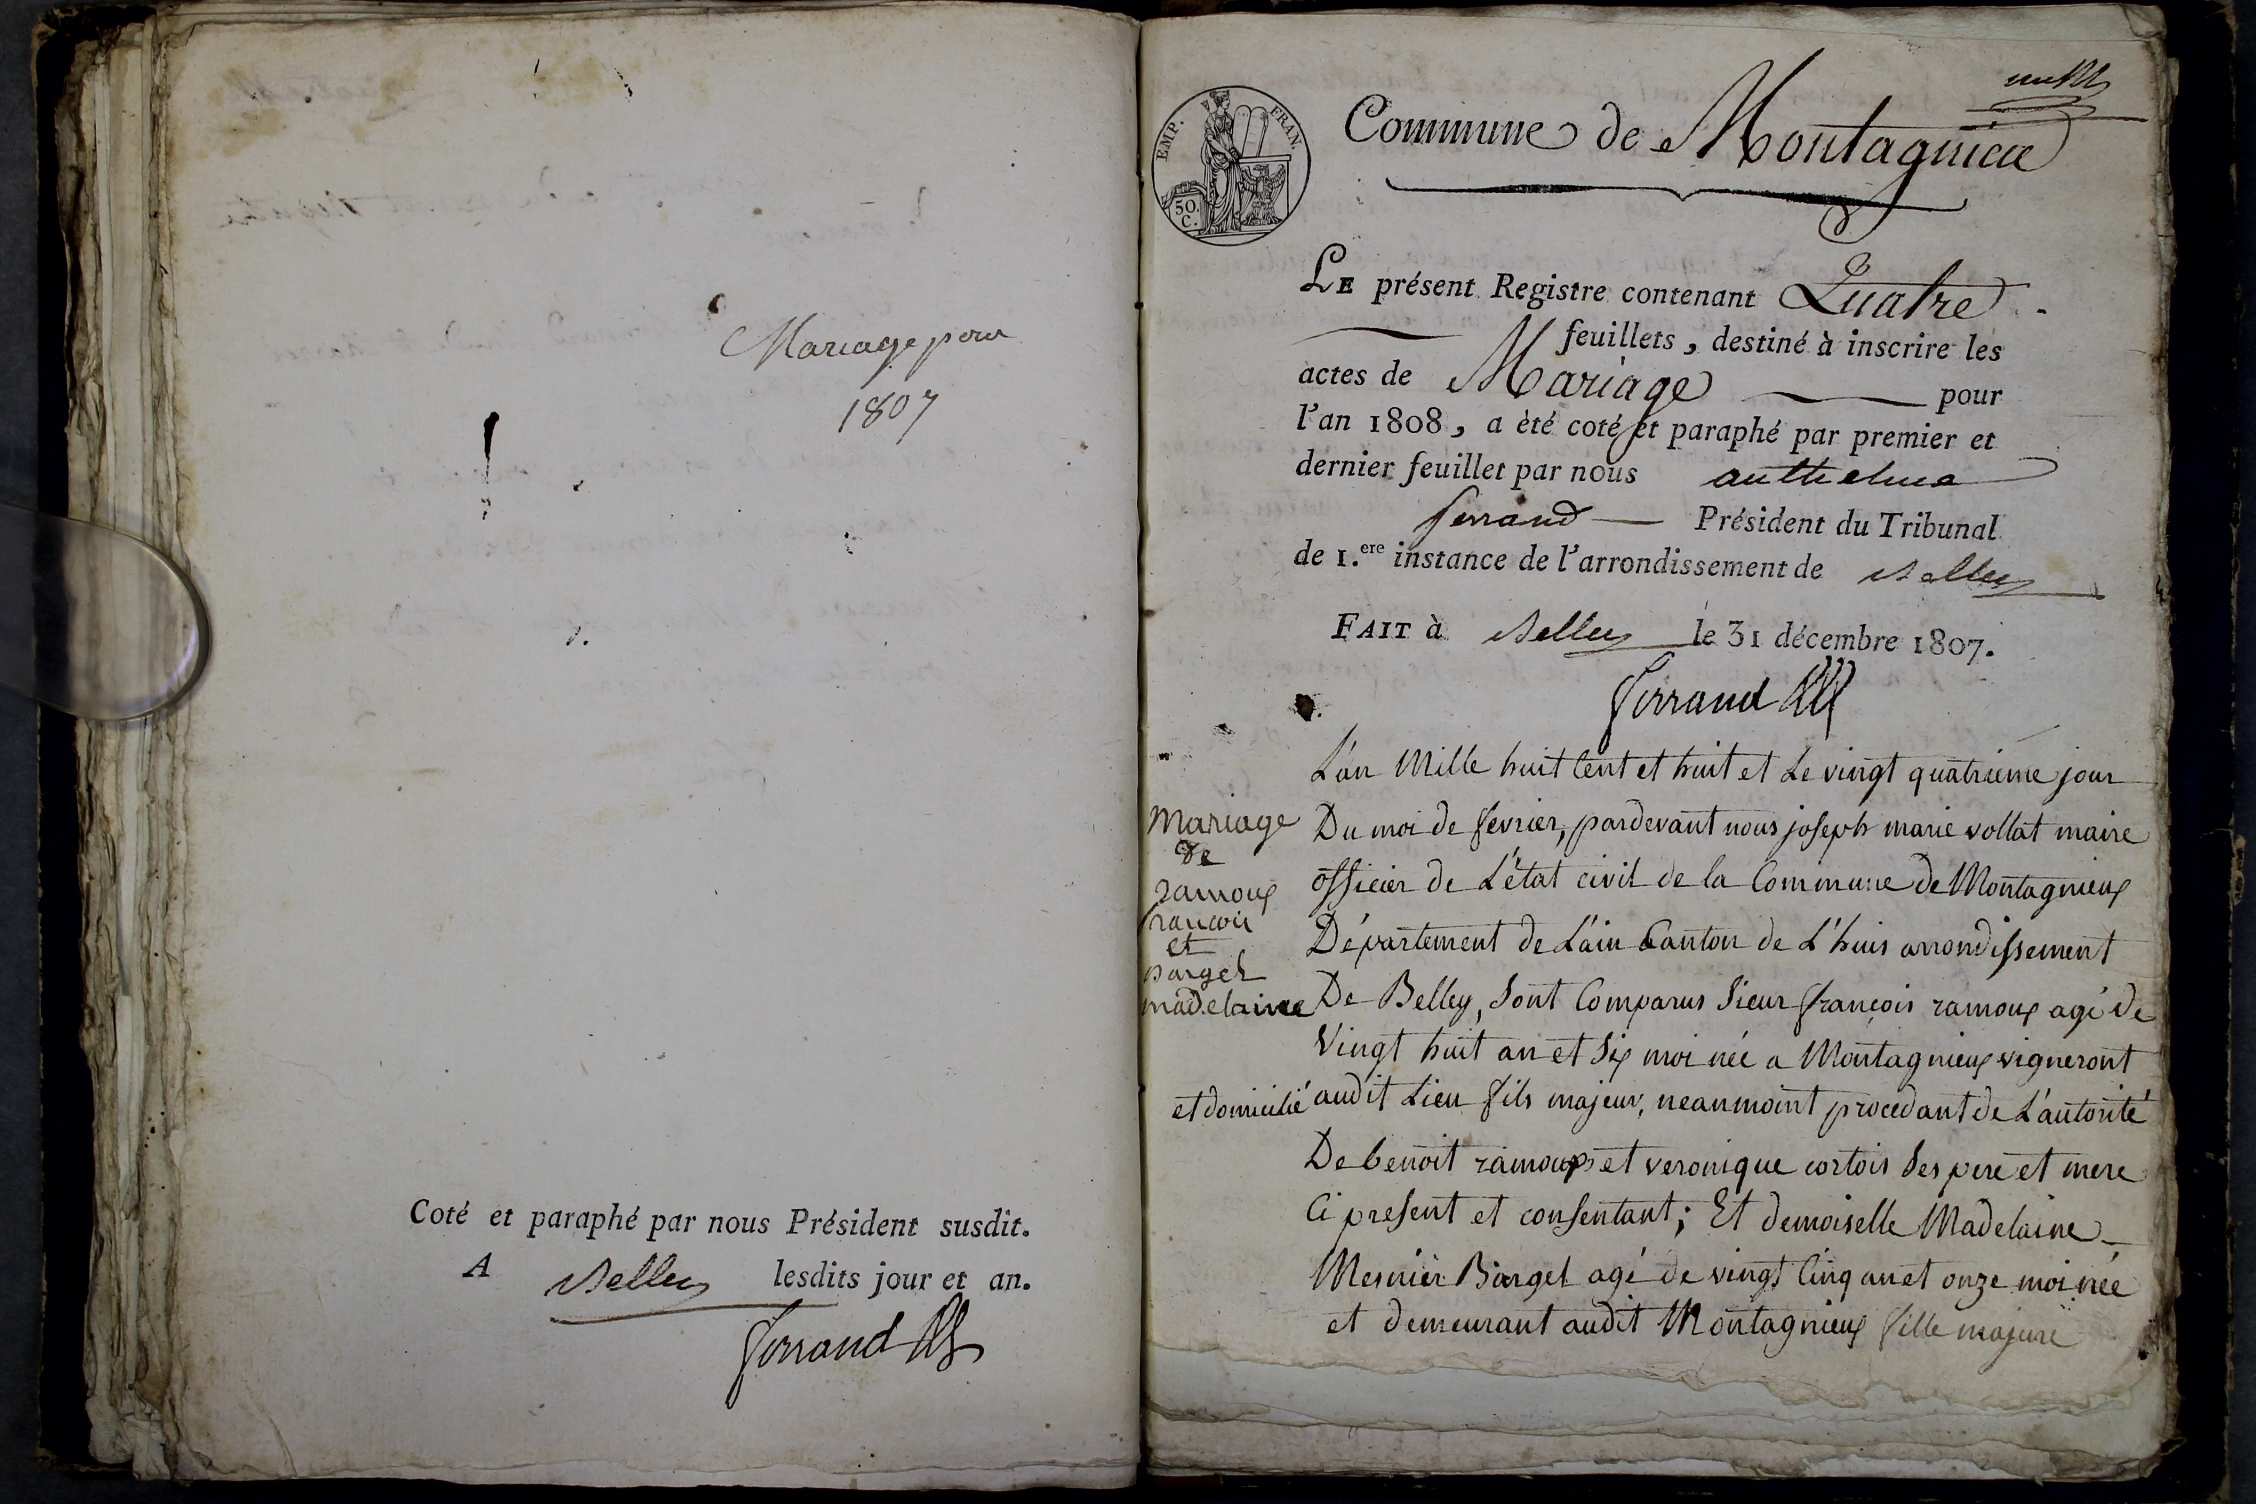 Mariage pour
1807
Coté et paraphé par nous Président susdit.
A Belley lesdits jour et an.
Ferrand
EMP. FRAN.
50.
C.
Commune de Montagnieu
LE présent Registre contenant Quatre
feuillets, destiné à inscrire les
actes de Mariage pour
l'an 1808, a été coté et paraphé par premier et
dernier feuillet par nous anthelme
ferrand Président du Tribunal
de 1.ere instance de l'arrondissement de Belley
FAIT à Belley le 31 décembre 1807.
Ferrand
Mariage
de
ramoux
francois
et
Barget
madelaine
L'an Mille huit Cent et huit et Le vingt quatrieme jour
Du moi de fevrier, pardevant nous joseph marie vollat maire
officier de L'état civil de la Commune de Montagnieux
Département de L'ain Canton de L'huis arrondissement
De Belley, Sont Comparus Sieur françois ramoux agé de
Vingt huit an et Six moi née a Montagnieux vigneront
et domicilié audit Lieu fils majeur, neanmoint procedant de L'autorité
De benoit ramoux et veronique cortois Ses pere et mere
Ci present et consentant; Et demoiselle Madelaine
Mesnier Barget agé de vingt Cinq an et onze moi née
et demeurant audit Montagnieux fille majure